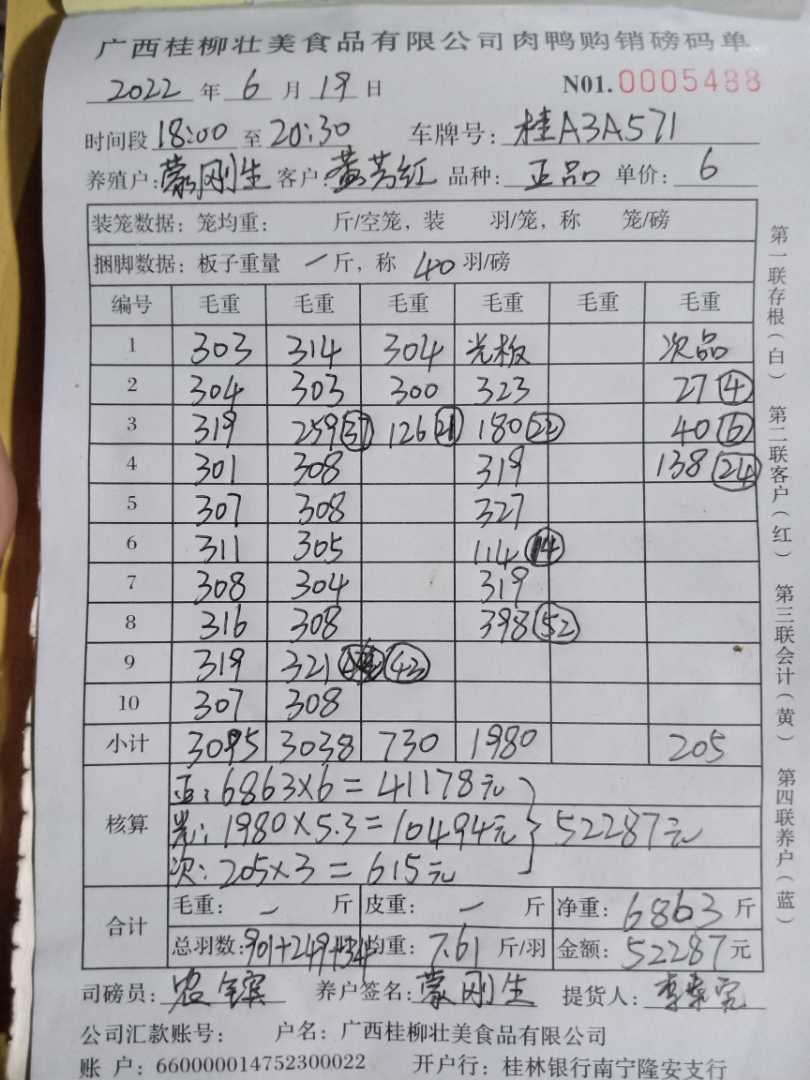 广西桂柳壮美食品有限公司肉鸭购销磅码单
2022 年 6 月 19 日 N01.0005488
时间段 18:00 至 20:30 车牌号: 桂A3A571
养殖户: 蒙刚生 客户: 黄芳红 品种: 正品 单价: 6
装笼数据: 笼均重: 斤/空笼, 装 羽/笼, 称 笼/磅
捆脚数据: 板子重量 一 斤, 称 40 羽/磅
编号 毛重 毛重 毛重 毛重 毛重 毛重
1 303 314 304 光板 次品
2 304 303 300 323 27 ④
3 319 259 37 126 21 180 22 40 ⑥
4 301 308 319 138 24
5 307 308 327
6 311 305 114 14
7 308 304 319
8 316 308 398 52
9 319 321 43
10 307 308
小计 3095 3038 730 1980 205
核算 正: 6863×6 = 41178元
光: 1980×5.3 = 10494元 } 52287元
次: 205×3 = 615元
合计 毛重: 一 斤 皮重: 一 斤 净重: 6863 斤
总羽数: 901+249+34 均重: 7.61 斤/羽 金额: 52287 元
司磅员: 养户签名: 蒙刚生 提货人:
公司汇款账号: 户名: 广西桂柳壮美食品有限公司
账 户: 660000014752300022 开户行: 桂林银行南宁隆安支行
第一联存根(白) 第二联客户(红) 第三联会计(黄) 第四联养户(蓝)